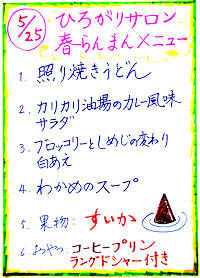 5/25
ひろがりサロン
春らんまんメニュー
1. 照り焼きうどん
2. カリカリ油揚のカレー風味
サラダ
3. ブロッコリーとしめじの変わり
白あえ
4. わかめのスープ
5 果物: すいか
6. おやつ: コーヒープリン
ラングドシャー付き